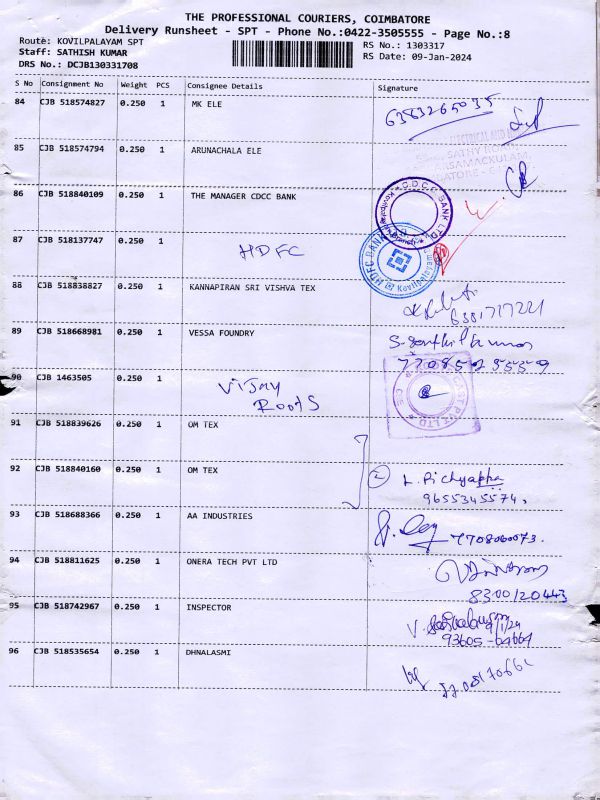 THE PROFESSIONAL COURIERS, COIMBATORE
Delivery Runsheet - SPT - Phone No.:0422-3505555 - Page No.:8
Route: KOVILPALAYAM SPT
Staff: SATHISH KUMAR
DRS No.: DCJB130331708
RS No.: 1303317
RS Date: 09-Jan-2024
S No Consignment No Weight PCS Consignee Details Signature
84 CJB 518574827 0.250 1 MK ELE 6383265035
85 CJB 518574794 0.250 1 ARUNACHALA ELE
86 CJB 518840109 0.250 1 THE MANAGER CDCC BANK
87 CJB 518137747 0.250 1 HDFC
88 CJB 518838827 0.250 1 KANNAPIRAN SRI VISHVA TEX
6381717221
89 CJB 518668981 0.250 1 VESSA FOUNDRY S. Senthil Kumar
90 CJB 1463505 0.250 1 Vijay
Roots
91 CJB 518839626 0.250 1 OM TEX
92 CJB 518840160 0.250 1 OM TEX 2
9655345574.
93 CJB 518688366 0.250 1 AA INDUSTRIES 7708060073.
94 CJB 518811625 0.250 1 ONERA TECH PVT LTD
8300120443
95 CJB 518742967 0.250 1 INSPECTOR
9/1/24
93605-64664
96 CJB 518535654 0.250 1 DHNALASMI